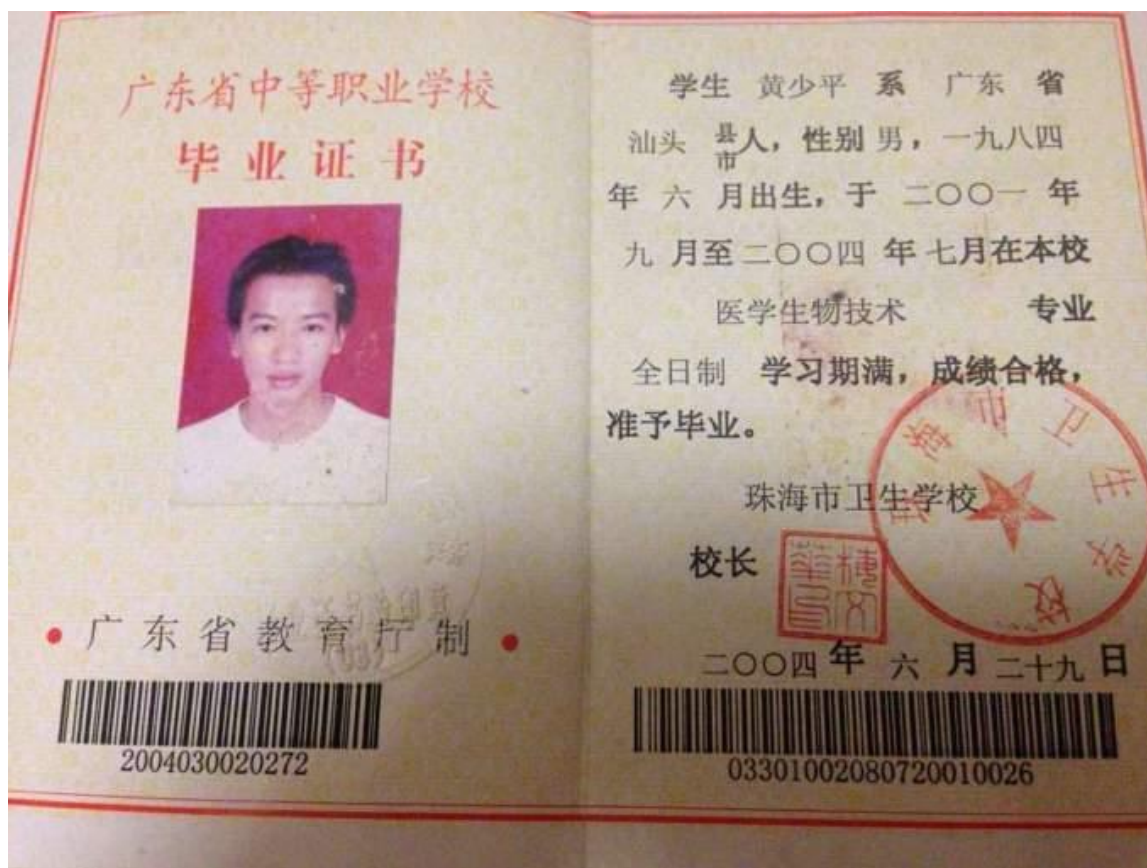 广东省中等职业学校
毕业证书
广东省教育厅制
2004030020272
学生 黄少平 系 广东 省
汕头 县市人，性别 男，一九八四
年 六 月出生，于 二〇〇一 年
九 月至 二〇〇四 年 七月在本校
医学生物技术 专业
全日制 学习期满，成绩合格，
准予毕业。
珠海市卫生学校
校长
珠海市卫生学校
二〇〇四 年 六 月 二十九 日
03301002080720010026